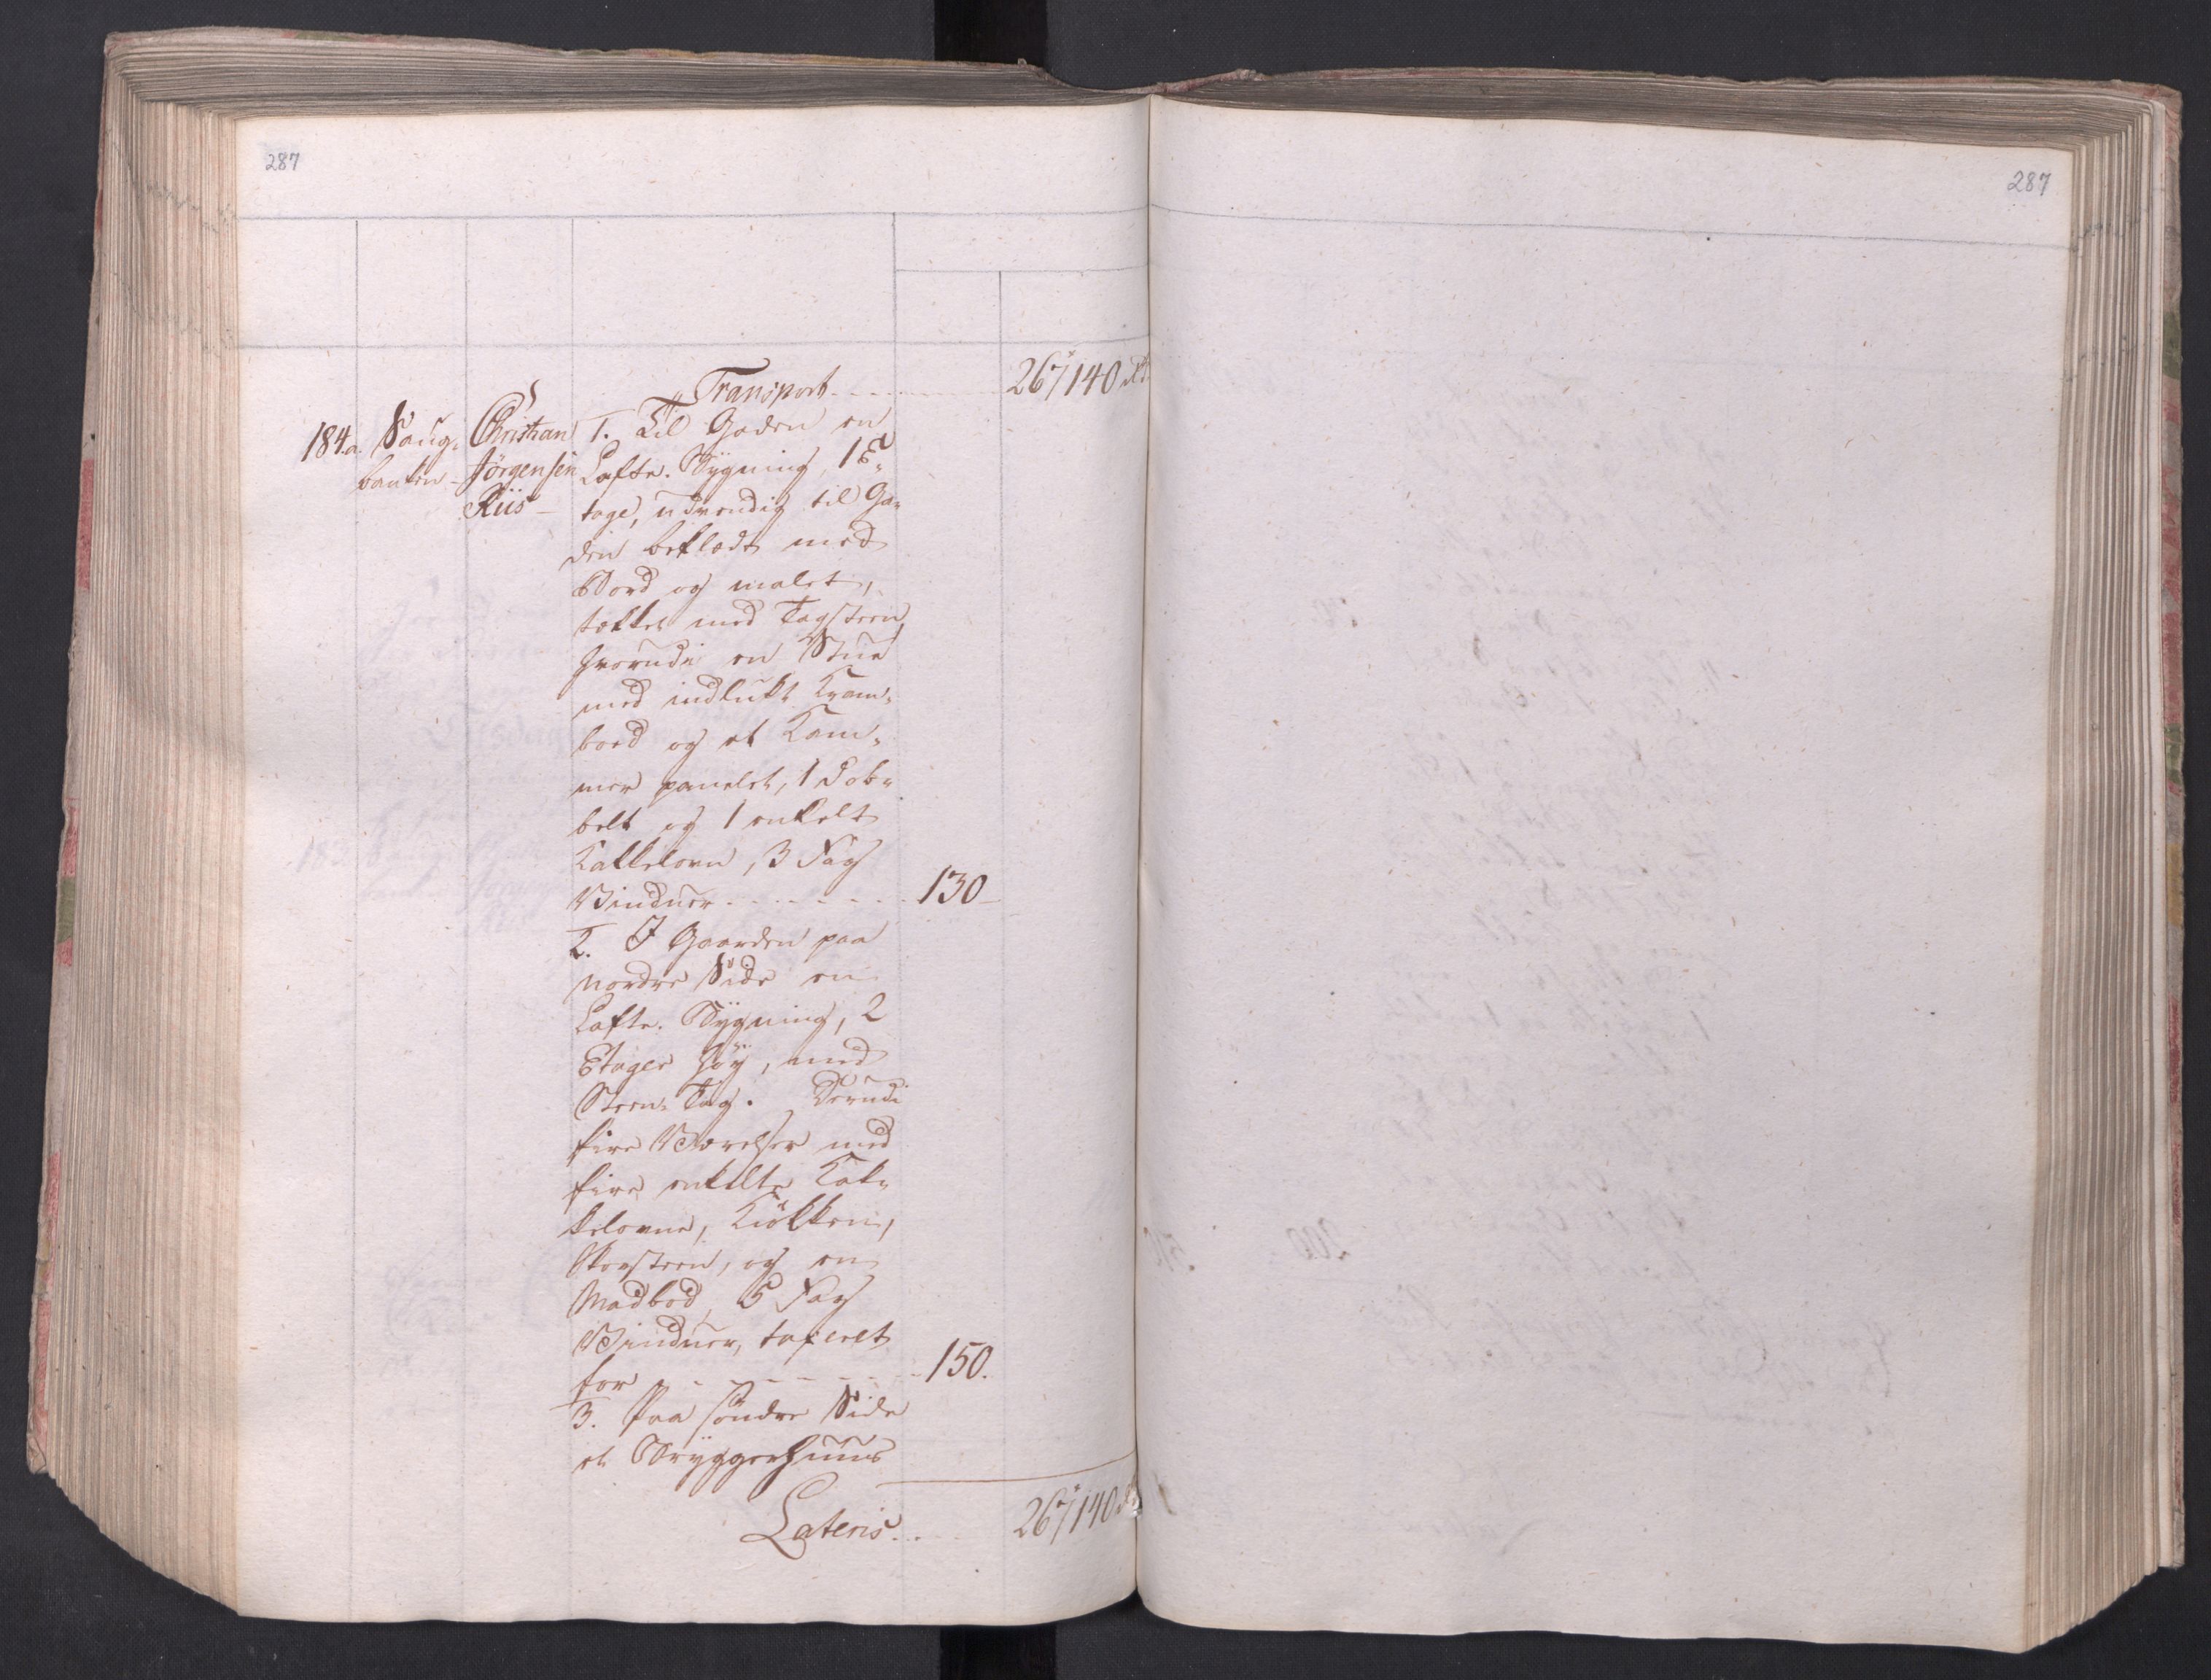 287
287
Transport - - - 267140 Rd
184.a. Saug- Christian 1. Til Gaden en
banken - Jörgensen Lafte-Bygning, 1 E-
Riis - tage, udvendig til Ga-
den beklædt med
Bord og malet,
tækket med Tagsteen,
hvorudi en Stue
med indlukt Kram-
boed og et Kam-
mer panelet, 1 dob-
belt og 1 enkelt
Kakkelovn, 3 Fag
Vinduer - - - - - - 130 -
2. I Gaarden paa
nordre Side en
Lafte-Bygning, 2
Etager høy, med
Steen-Tag. Derudi
fire Værelser med
fire enkelte Kak-
kelovne, Kiökken,
Skorsteen, og en
Madbod, 5 Fag
Vinduer, taxeret
for - - - - - - 150.
3. Paa söndre Side
et Bryggerhuus
Lateris - - 267140 Rd